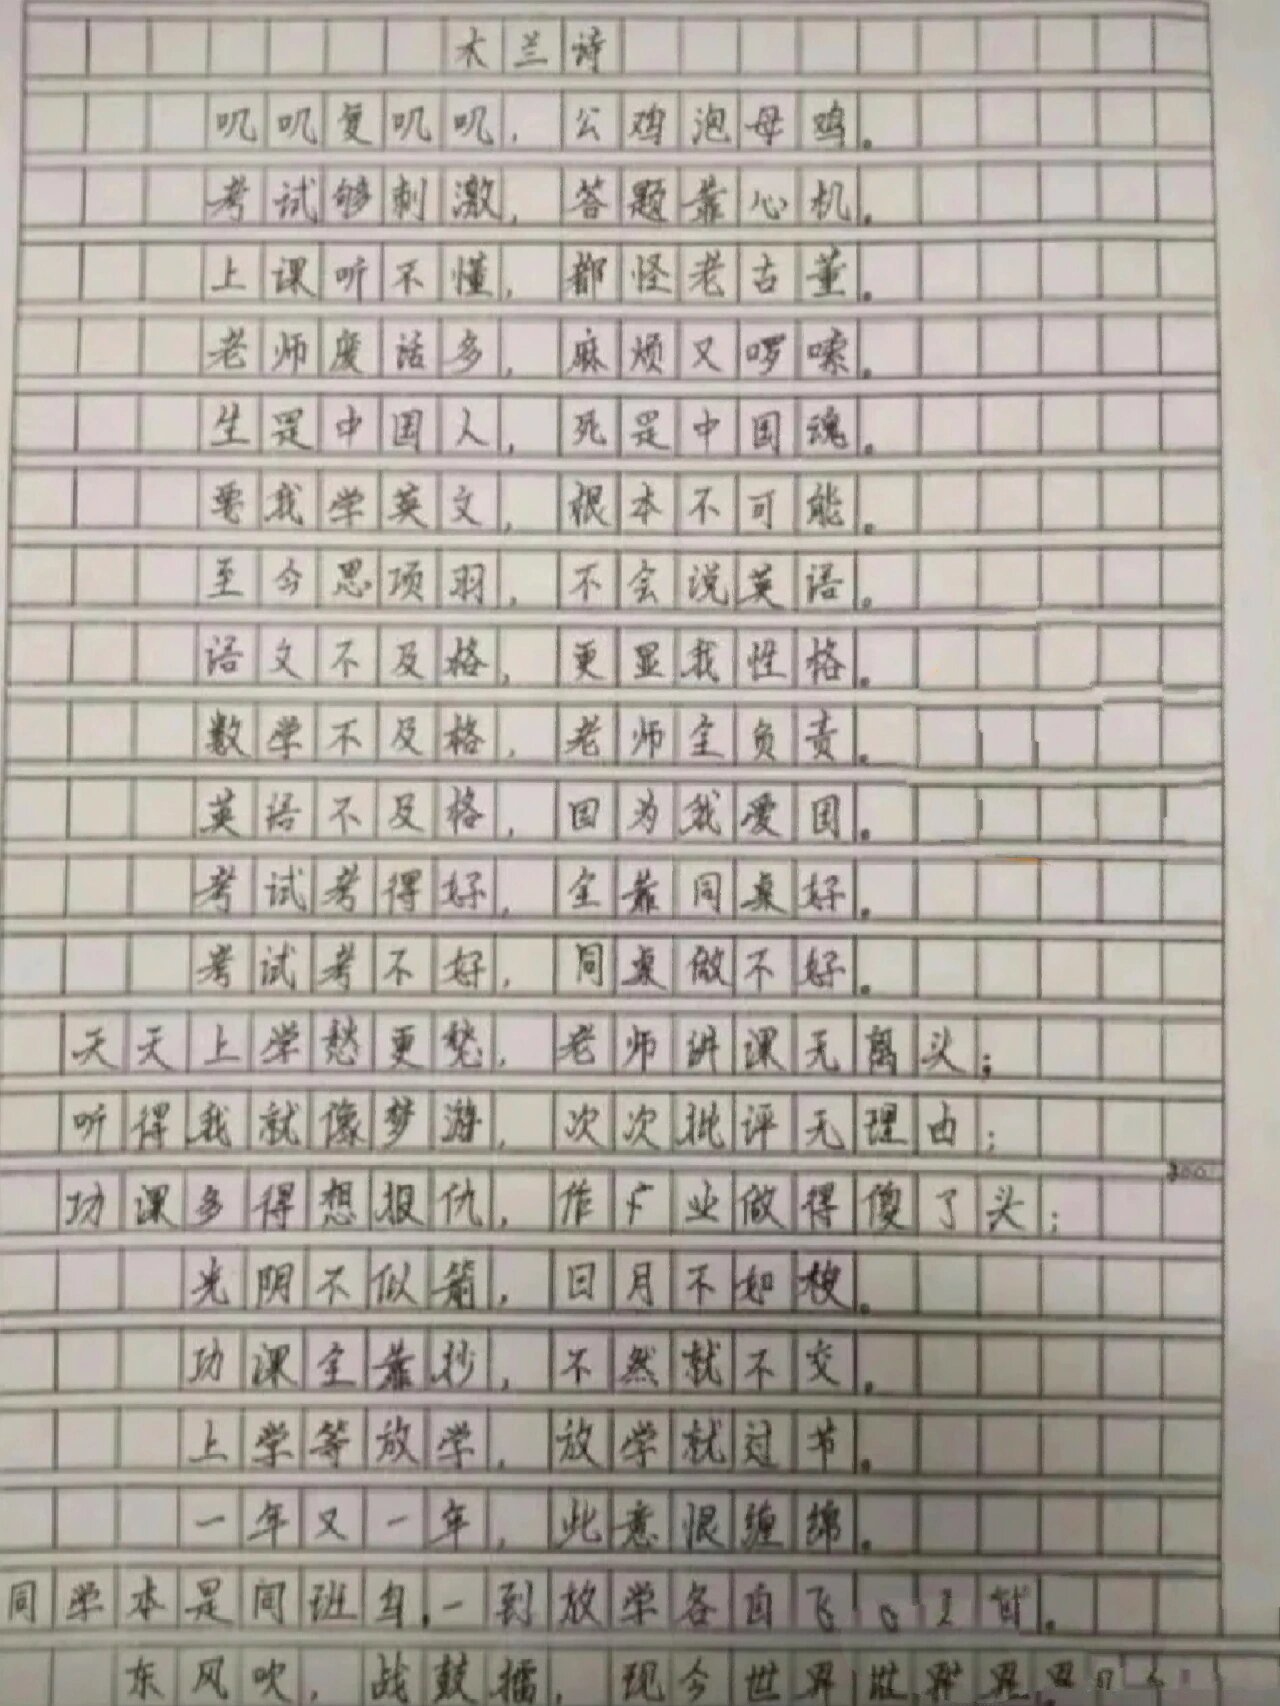 木兰诗
叽叽复叽叽，公鸡泡母鸡。
考试够刺激，答题靠心机。
上课听不懂，都怪老古董。
老师废话多，麻烦又啰嗦。
生是中国人，死是中国魂。
要我学英文，根本不可能。
至今思项羽，不会说英语。
语文不及格，更显我性格。
数学不及格，老师全负责。
英语不及格，因为我爱国。
考试考得好，全靠同桌好。
考试考不好，同桌做不好。
天天上学愁更愁，老师讲课无离头；
听得我就像梦游，次次批评无理由；
200
功课多得想报仇，作业做得傻了头；
光阴不似箭，日月不如梭。
功课全靠抄，不然就不交。
上学等放学，放学就过节。
一年又一年，此意恨缠绵。
同学本是同班鸟，一到放学各自飞。
东风吹，战鼓擂，现今世界